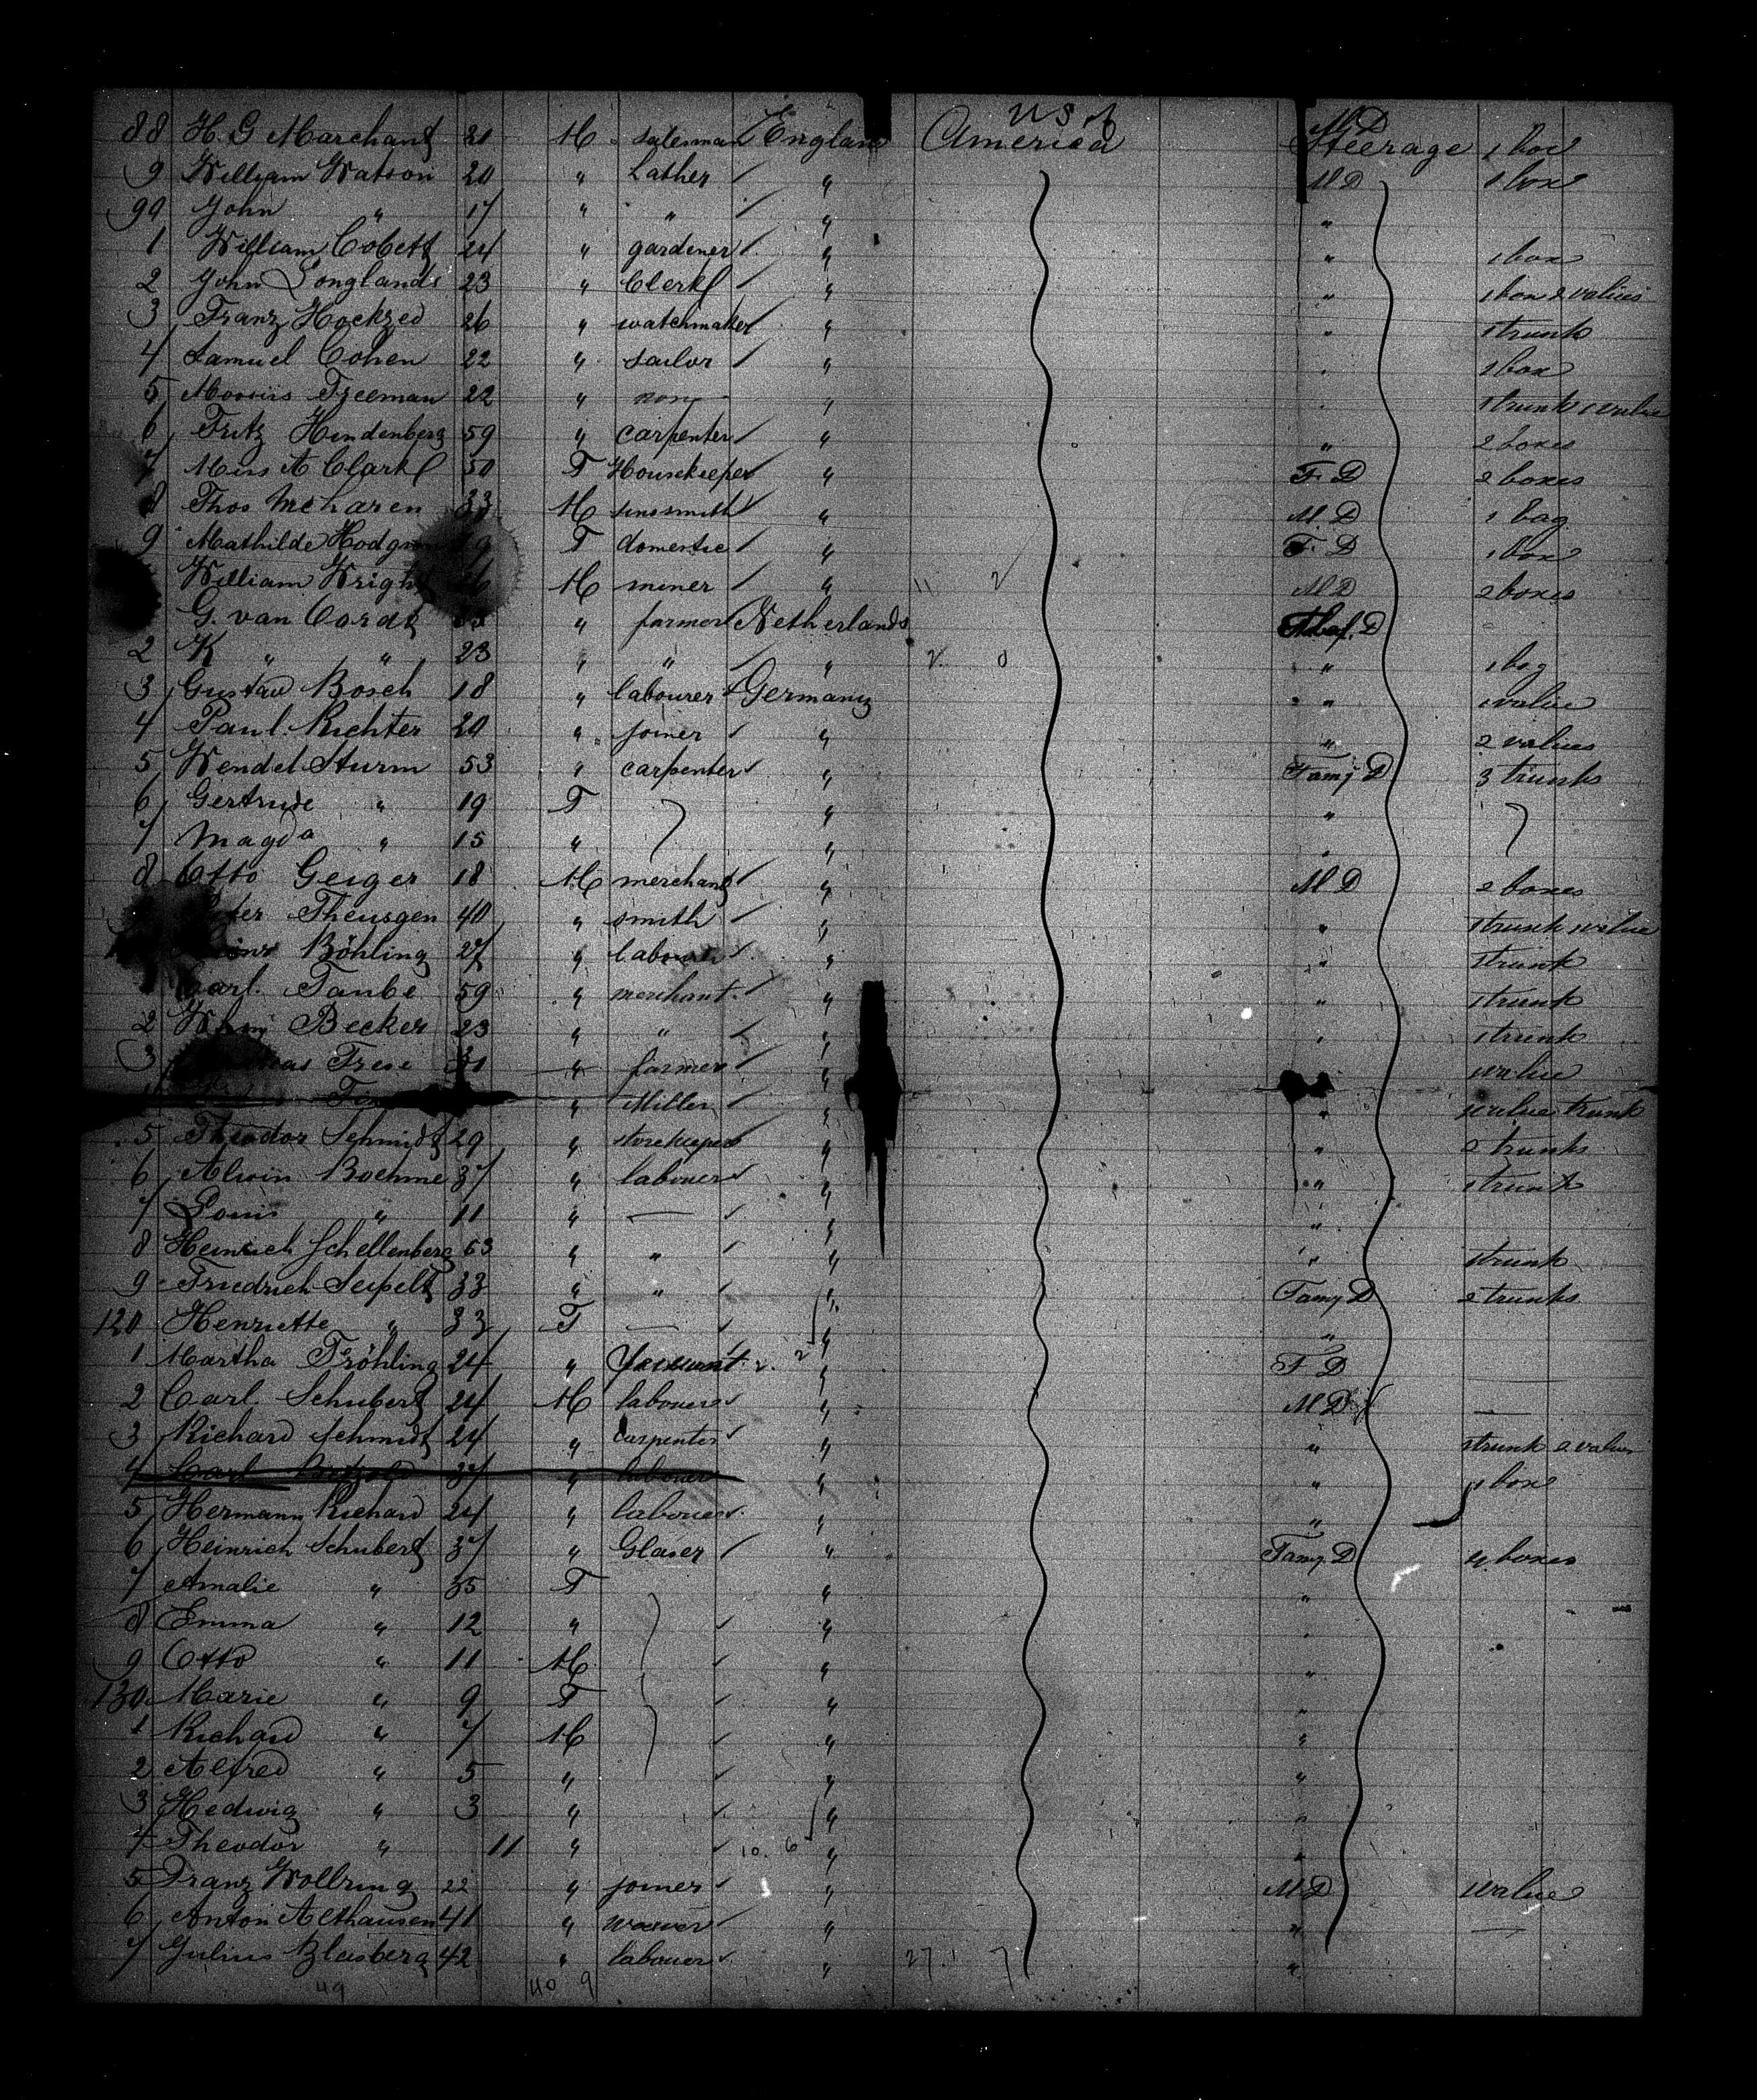 U S of
88 H. G Marchant 21 M salesman England America M D Steerage 1 box
9 William Watson 20 " Lather " M D 1 box
90 John " 17 " " " "
1 William Cobett 24 " gardener " " 1 box
2 John Longlands 23 " Clerk " " 1 box 2 valies
3 Franz Hockzed 26 " watchmaker " " 1 trunk
4 Samuel Cohen 22 " sailor " " 1 box
5 Freeman 22 " none " " 1 trunk 1 valie
6 Fritz Hindenberg 59 " carpenter " " 2 boxes
7 Miss A Clark 50 F Housekeeper " F. D 2 boxes
8 Thos McLaren 33 M " M. D 1 bag
9 Mathilde F domestic " F. D 1 box
William Wright M miner " 11 2 M D 2 boxes
G. van Cordt " farmer Netherlands D
2 K " " 23 " " " 2 0 " 1 bag
3 Gustav Bosch 18 " labourer Germany " 1 valie
4 Paul Richter 20 " joiner " " 2 valies
5 Wendel Sturm 53 " carpenter " Famy D 3 trunks
6 Gertrude " 19 F " "
7 Magda " 15 " " "
8 Otto Geiger 18 M merchant " M D 2 boxes
Theusgen 40 " smith " " 1 trunk 1 valie
Böhling 27 " labourer " " 1 trunk
Carl Taube 59 " merchant " " 1 trunk
2 Becker 23 " " " " 1 trunk
3 Frese 31 " farmer " 1 valie
" Miller " " 1 valie 1 trunk
5 Theodor Schmidt 29 " storekeeper " " 2 trunks
6 Alwin Boehme 37 " labouer " " 1 trunk
7 Louis " 11 " — " "
8 Heinrich Schellenberg 63 " " " " 1 trunk
9 Friedrich Seipelt 33 " " " Famy D 2 trunks
120 Henriette " 33 F — " "
1 Martha Fröhling 24 " 2. 2 " F D
2 Carl Schubert 24 M labouer " M D —
3 Richard Schmidt 24 " carpenter " " 1 trunk 2 valies
4 Carl 37 " labouer " " 1 box
5 Hermann Richard 24 " labouer " "
6 Heinrich Schubert 37 " Glaser " Famy. D 4 boxes
7 Amalie " 35 F " "
8 Emma " 12 " " "
9 Otto " 11 M " "
130 Marie " 9 F " "
1 Richard " 7 M " "
2 Alfred " 5 " " "
3 Hedwig " 3 " " "
4 Theodor " 11 " 10. 6 " "
5 Franz Wollring 22 " joiner " M D 1 valie
6 Anton Althausen 41 " weaver " " —
7 Julius Blasberg 42 " labouer " 27. 7 "
49 40 9